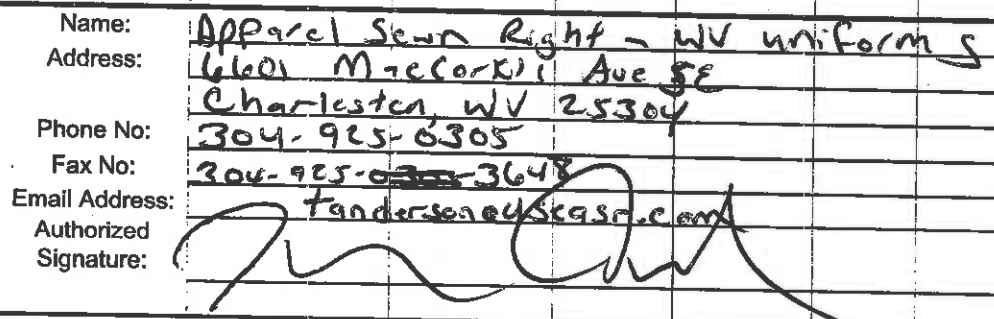 Name: Apparel Sewn Right - WV uniforms
Address: 6601 MacCorkle Ave SE
Charleston, WV 25304
Phone No: 304-925-0305
Fax No: 304-925-3648
Email Address:
Authorized
Signature: